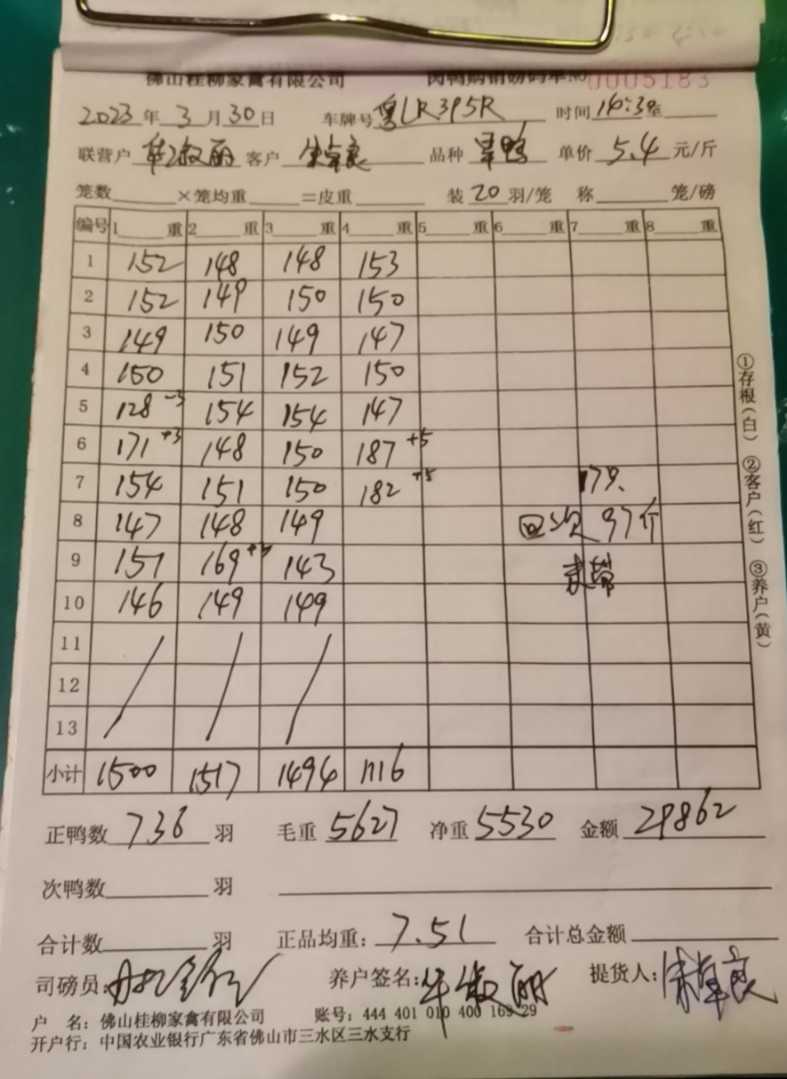 佛山桂柳家禽有限公司 肉鸭购销磅码单 No 0005183
2023年3月30日 车牌号 粤LR395R 时间 16:30
联营户 淑丽 客户 良 品种 鸭 单价 5.4 元/斤
笼数 ×笼均重 =皮重 装 20 羽/笼 称 笼/磅
编号 1 重 2 重 3 重 4 重 5 重 6 重 7 重 8 重
1 152 148 148 153
2 152 149 150 150
3 149 150 149 147
4 150 151 152 150
5 128 -3 154 154 147
6 171 +3 148 150 187 +5
7 154 151 150 182 +5
8 147 148 149
9 151 169 143
10 146 149 149
11
12
13
回 97斤
小计 1500 1517 1494 1116
正鸭数 736 羽 毛重 5627 净重 5530 金额 29862
次鸭数 羽
合计数 羽 正品均重: 7.51 合计总金额
司磅员: 养户签名: 淑丽 提货人: 良
户 名: 佛山桂柳家禽有限公司 账号: 444 401 010 400 169 29
开户行: 中国农业银行广东省佛山市三水区三水支行
①存根(白) ②客户(红) ③养户(黄)